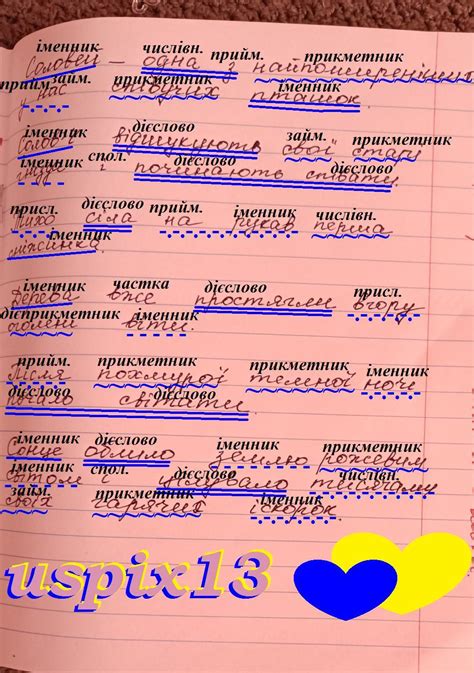 іменник числівн. прийм. прикметник
Соловей – одна з найпоширеніших
прийм. займ. прикметник іменник
у нас співучих пташок.
іменник дієслово займ. прикметник
Солов'ї відшукують свої старі
іменник спол. дієслово дієслово
гнізда і починають співати.
присл. дієслово прийм. іменник числівн.
Тихо сіла на рукав перша
іменник
сніжинка.
іменник частка дієслово присл.
Дерева вже простягли вгору
дієприкметник іменник
віти.
прийм. прикметник прикметник іменник
Після похмурої темної ночі
дієслово дієслово
почало світати.
іменник дієслово іменник прикметник
Сонце облило землю рожевим
іменник спол. дієслово числівн.
світом і цілувало тисячами
займ. прикметник іменник
своїх гарячих іскорок.
uspix13